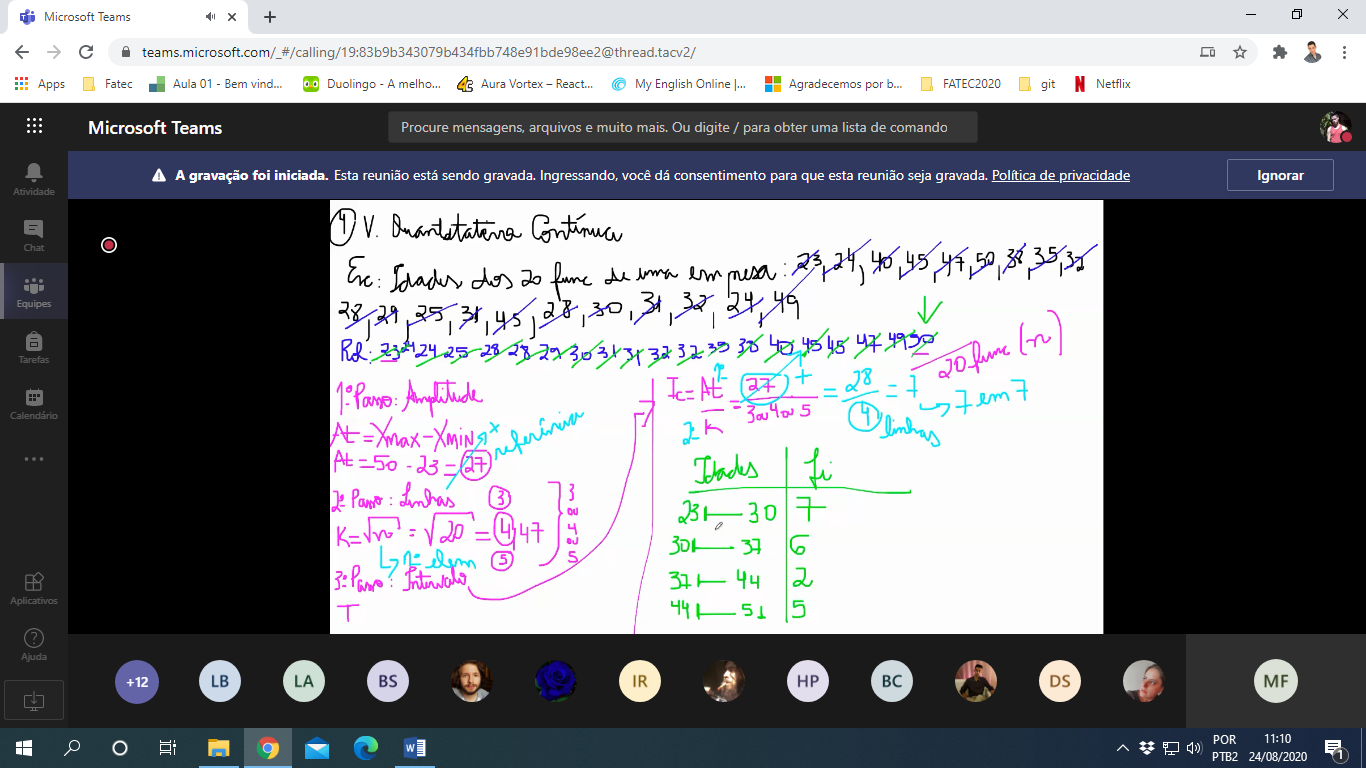 Microsoft Teams
teams.microsoft.com/_#/calling/19:83b9b343079b434fbb748e91bde98ee2@thread.tacv2/
Apps Fatec Aula 01 - Bem vind... Duolingo - A melho... Aura Vortex – React... My English Online |... Agradecemos por b... FATEC2020 git Netflix
Microsoft Teams
Procure mensagens, arquivos e muito mais. Ou digite / para obter uma lista de comando
A gravação foi iniciada. Esta reunião está sendo gravada. Ingressando, você dá consentimento para que esta reunião seja gravada. Política de privacidade
Ignorar
Atividade
Chat
Equipes
Tarefas
Calendário
Aplicativos
Ajuda
4 V. Quantitativa Contínua
Ex: Idades dos 20 func de uma empresa: 23, 24, 40, 45, 47, 50, 38, 35, 32
28, 29, 25, 31, 45, 28, 30, 31, 32, 24, 49
Rol: 23 24 24 25 28 28 29 30 31 31 32 32 35 38 40 45 45 47 49 50
20 func (n)
1º Passo: Amplitude
At = Xmax - Xmin
referência
At = 50 - 23 = 27
2º Passo: Linhas 3
K = √n = √20 = 4,47
nº elem 5
3 ou 4 ou 5
3º Passo: Intervalo
I
Ic = At / K = 27 / 3 ou 4 ou 5 = 28 / 4 = 7
7 em 7
linhas
1º
2º
Idades fi
23 30 7
30 37 6
37 44 2
44 51 5
+12 LB LA BS IR HP BC DS MF
POR
PTB2
11:10
24/08/2020
1